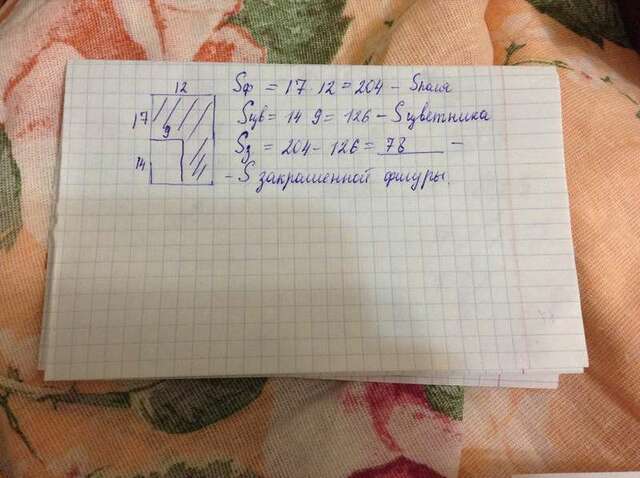 12
17
9
14
Sф = 17 12 = 204 - Sполя
Sцв = 14 9 = 126 - Sцветника
Sз = 204 - 126 = 78 -
- S закрашенной фигуры.